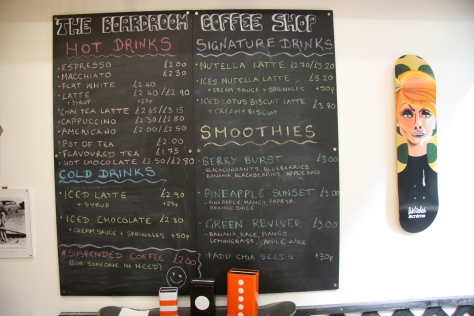 THE BOARDROOM
HOT DRINKS
ESPRESSO £2.00
MACCHIATO £2.30
FLAT WHITE £2.40
LATTE £2.40/£2.90
+ SYRUP +25p
CHAI TEA LATTE £2.65/£3.15
CAPPUCCINO £2.30/£2.80
AMERICANO £2.00/£2.50
POT OF TEA £2.00
FLAVOURED TEA £1.95
HOT CHOCOLATE £2.50/£2.80
COLD DRINKS
ICED LATTE £2.90
+ SYRUP +25p
ICED CHOCOLATE £2.80
+ CREAM SAUCE + SPRINKLES +50p
*SUSPENDED COFFEE £2.00
(FOR SOMEONE IN NEED)
COFFEE SHOP
SIGNATURE DRINKS
NUTELLA LATTE £2.70/£3.20
ICED NUTELLA LATTE £3.20
+ CREAM SAUCE + SPRINKLES +50p
ICED LOTUS BISCUIT LATTE £3.80
+ CREAM + BISCUIT
SMOOTHIES
BERRY BURST £3.00
BLACKCURRANTS, BLUEBERRIES
BANANA, BLACKBERRIES, APPLE JUICE
PINEAPPLE SUNSET £3.00
PINEAPPLE, MANGO, PAPAYA,
ORANGE JUICE
GREEN REVIVER £3.00
BANANA, KALE, MANGO
LEMONGRASS, APPLE JUICE
+ ADD CHIA SEEDS +30p